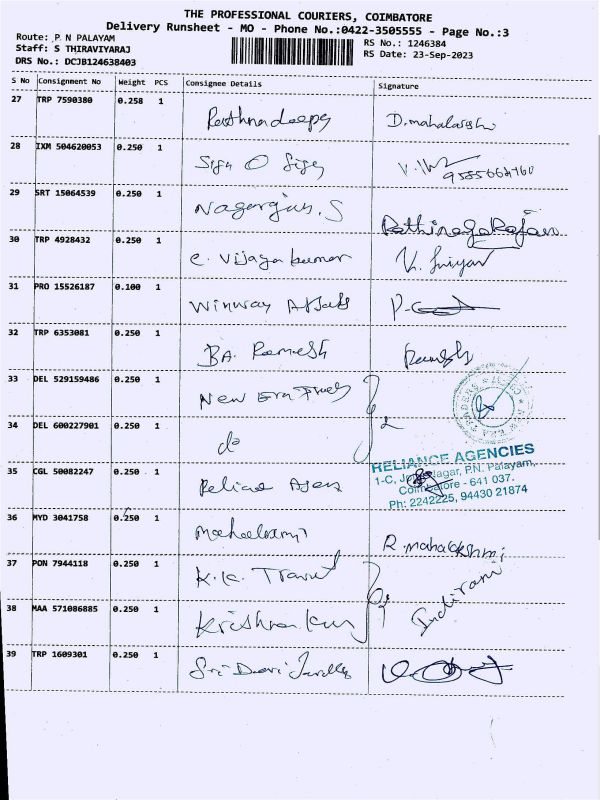 THE PROFESSIONAL COURIERS, COIMBATORE
Delivery Runsheet - MO - Phone No.:0422-3505555 - Page No.:3
Route: P N PALAYAM
RS No.: 1246384
Staff: S THIRAVIYARAJ
RS Date: 23-Sep-2023
DRS No.: DCJB124638403
S No Consignment No Weight PCS Consignee Details Signature
27 TRP 7590380 0.258 1 D. mahalakshmi
28 IXM 504620053 0.250 1 Sign O Sign
29 SRT 15064539 0.250 1 Nagarajan. S Rathinagarajan
30 TRP 4928432 0.250 1 C. Vijayakumar
31 PRO 15526187 0.100 1 Winway
32 TRP 6353081 0.250 1 BA. Ramesh Ramesh
33 DEL 529159486 0.250 1 New Era
34 DEL 600227901 0.250 1 do
RELIANCE AGENCIES
35 CGL 50082247 0.250 1
Nagar, P.N. Palayam,
Coimbatore - 641 037.
Ph: 2242225, 94430 21874
36 MYD 3041758 0.250 1 Mahalaxmi R. mahalakshmi
37 PON 7944118 0.250 1 K.K. Travel
38 MAA 571086885 0.250 1 Krishna Indirani
39 TRP 1609301 0.250 1 Sri Devi